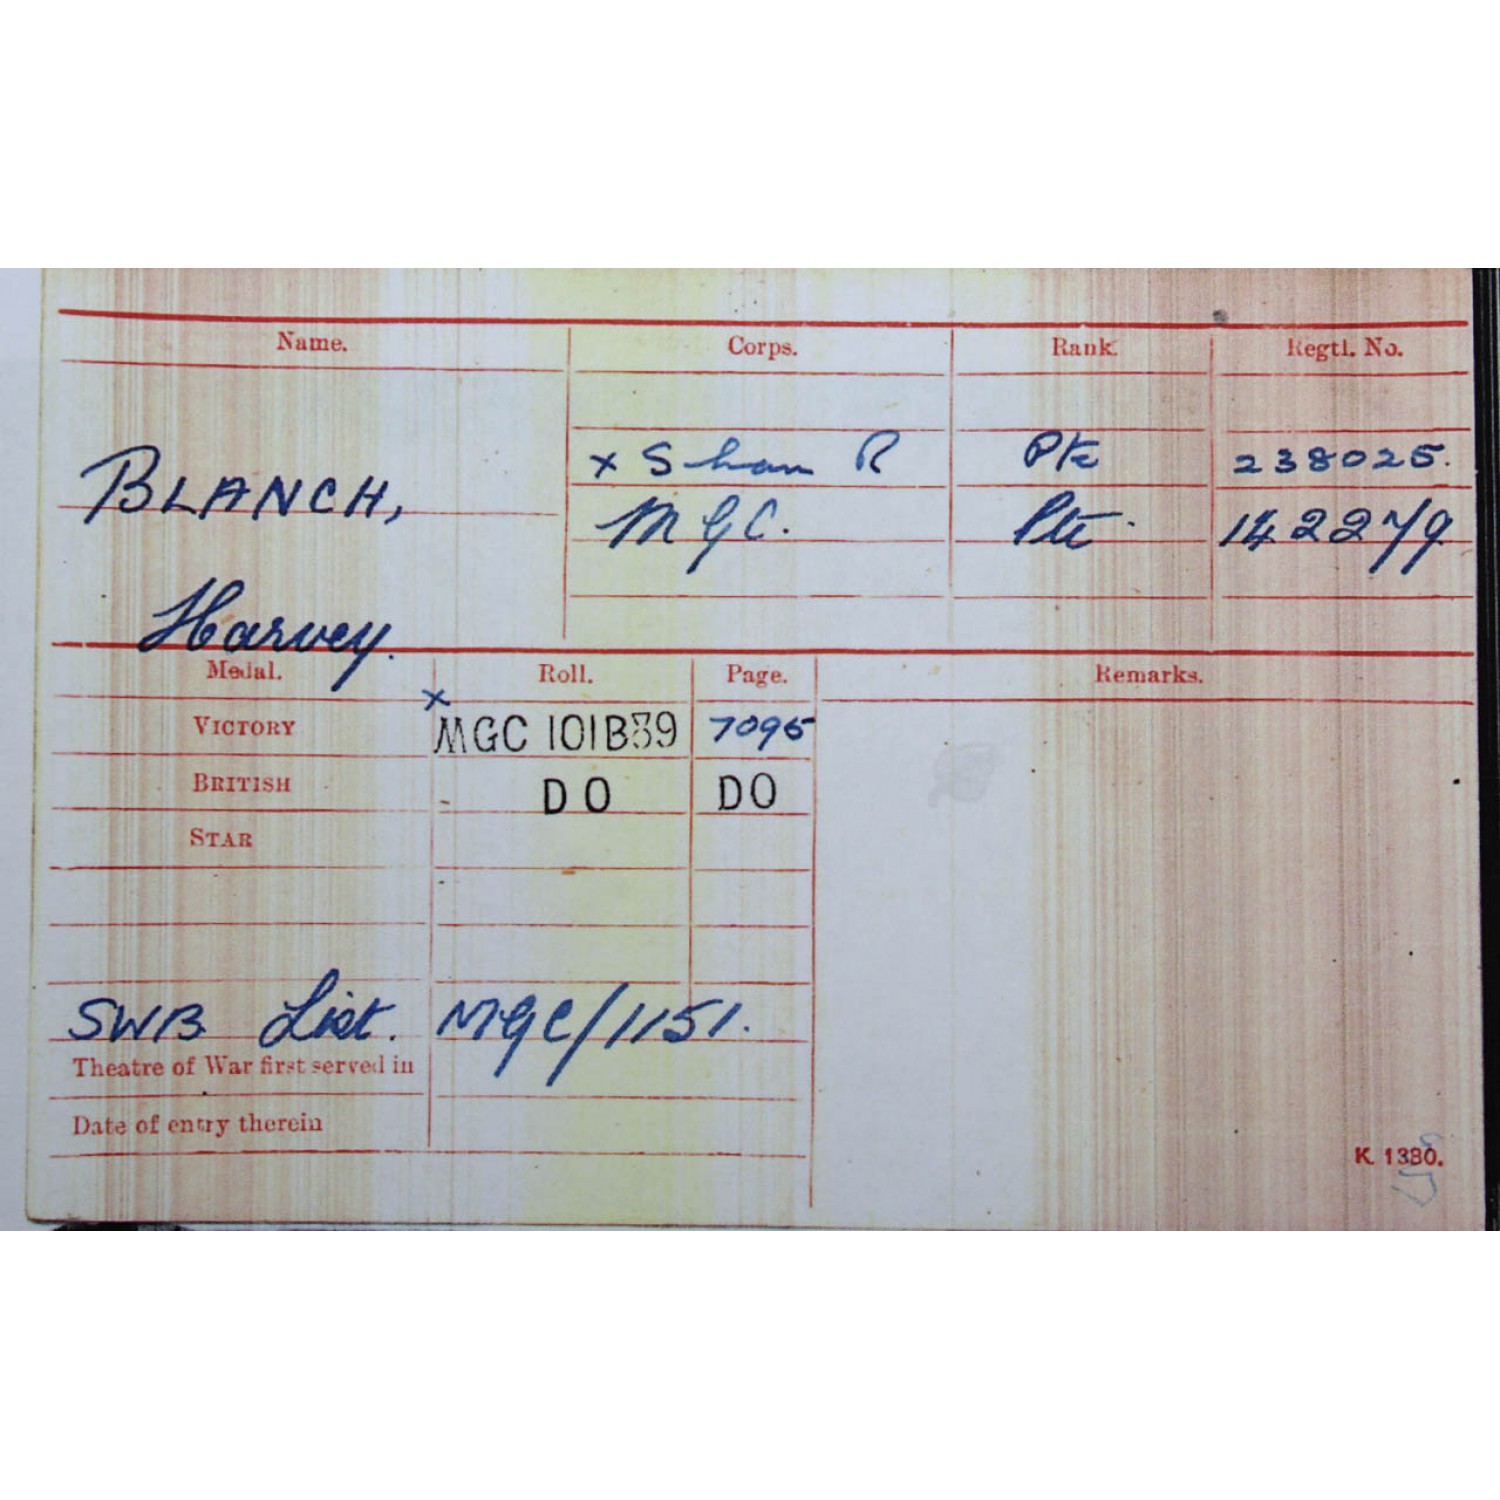 Name. Corps. Rank. Regtl. No.
x S Lan R Pte 238025.
BLANCH, MGC. Pte. 142279
Harvey.
Medal. Roll. Page. Remarks.
x
VICTORY MGC 101B39 7095
BRITISH DO DO
STAR
SWB List. MGC/1151.
Theatre of War first served in
Date of entry therein
K. 1380.